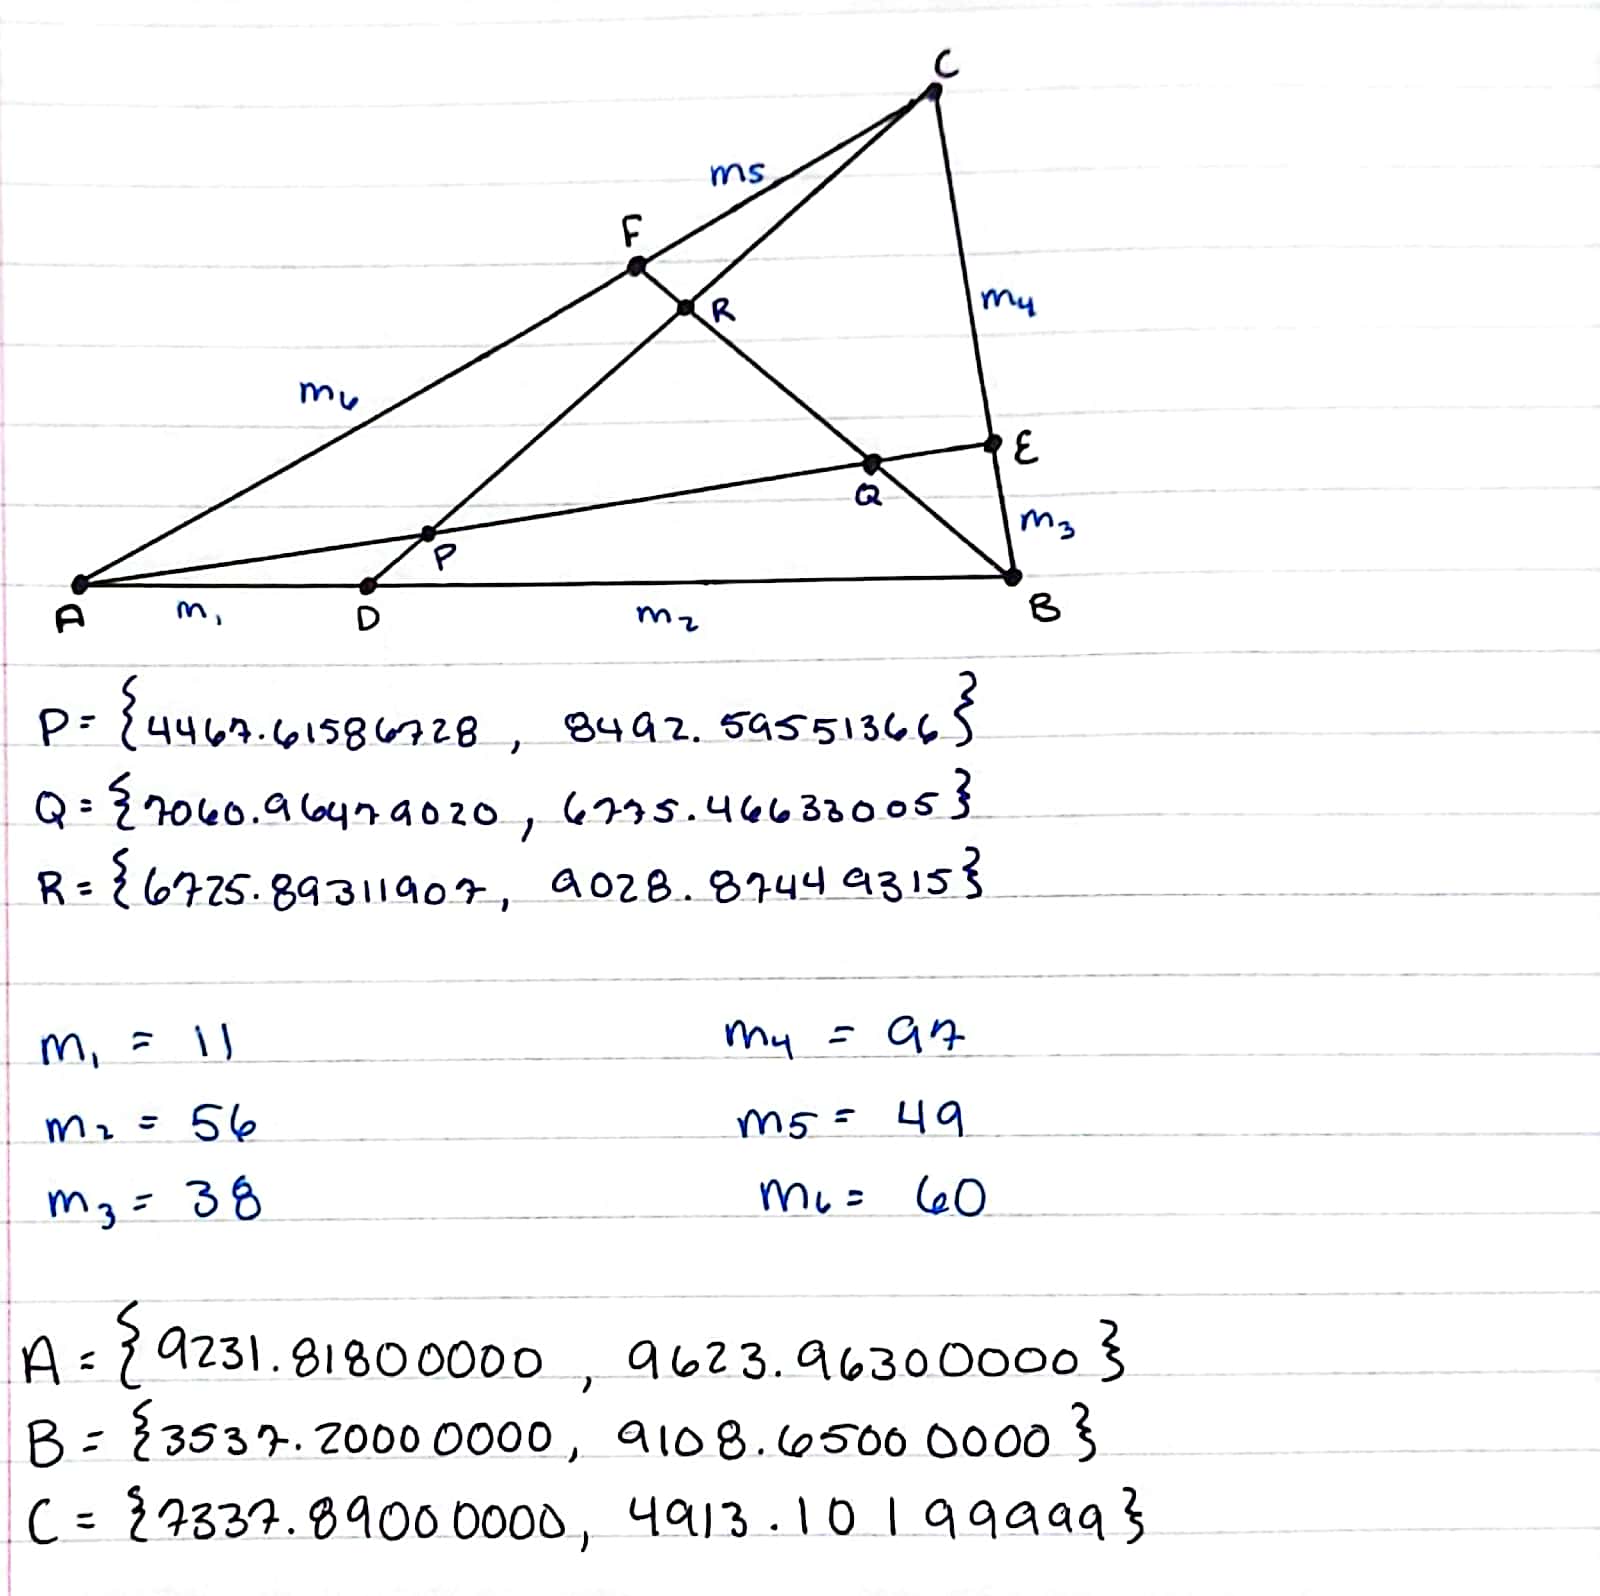 C
m5
F
R
m4
m6
E
Q
m3
P
A m1 D m2 B
P = {4467.61586728, 8492.59551366}
Q = {7060.96479020, 6775.46633005}
R = {6725.89311907, 9028.87449315}
m1 = 11 m4 = 97
m2 = 56 m5 = 49
m3 = 38 m6 = 60
A = {9231.81800000, 9623.96300000}
B = {3537.20000000, 9108.65000000}
C = {7337.89000000, 4913.10199999}